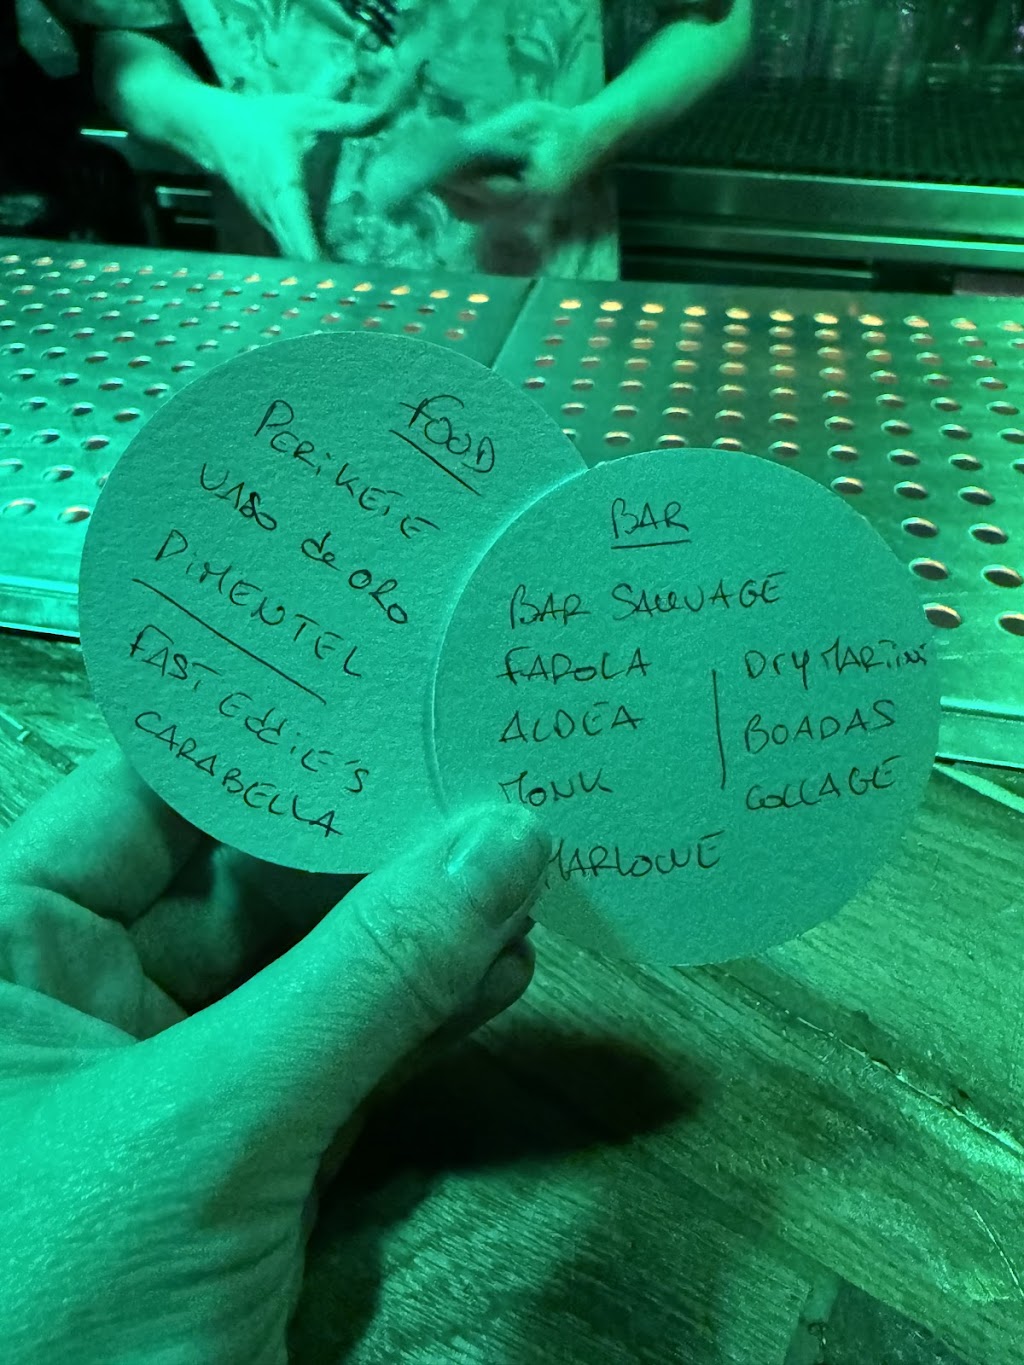 FOOD
PERiKETE
VASO de ORO
DiMENTEL
FAST Eddie's
CARABELLA
BAR
BAR SAUVAGE
FAROLA
ALDEA
MONK
MARLOWE
DrY MARTINI
BOADAS
COLLAGE